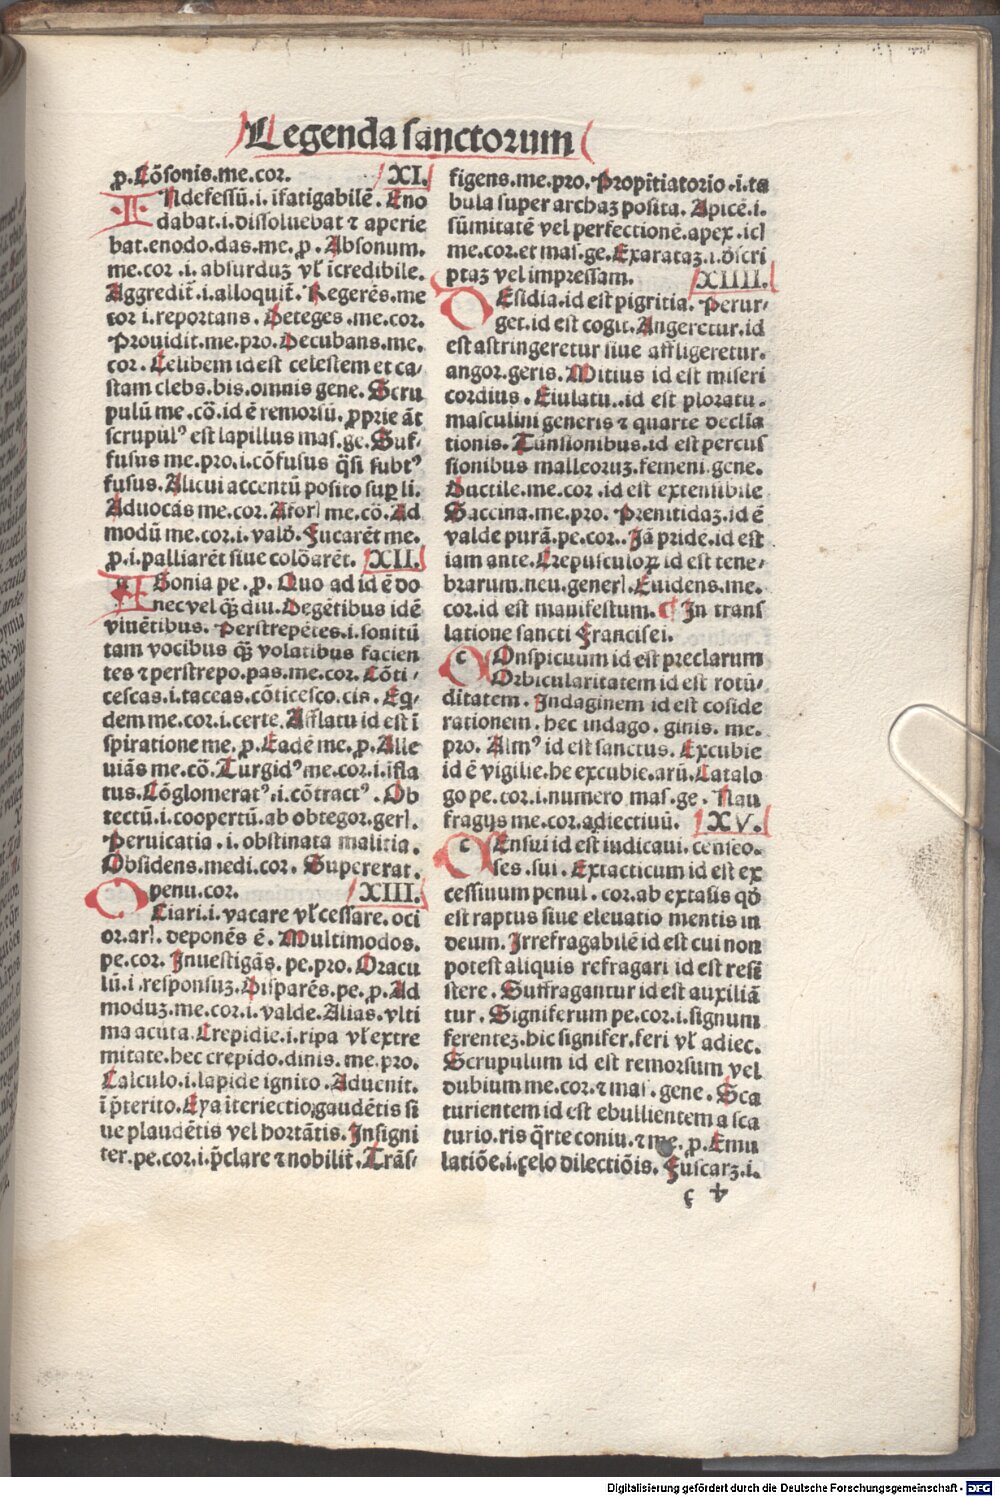 Legenda sanctorum
ꝓ. Cōſonis.me.cor. XI.
INdefeſſū.i.īfatigabilē. Eno
dabat.i.diſſoluebat ⁊ aperie
bat.enodo.das.me. ꝓ. Abſonum.
me.cor.i. abſurduꝫ vƚ īcredibile.
Aggredit̄.i.alloquit̄. Regerēs.me
cor i.reportans. Deteges.me.cor.
Prouidit.me.pro. Decubans.me.
cor. Celibem id eſt celeſtem et ca⸗
ſtam clebs.bis.omnis gene. Scru
pulū me.cō.id ē remorſū. ꝓprie āt
ſcrupulꝰ eſt lapillus maſ.ge. Suf⸗
fuſus me.pro.i.cōfuſus q̄ſi ſubtꝰ
fuſus. Alicui accentū poſito ſuꝑ li.
Aduocās me.cor. Aforƚ me.cō. Ad
modū me.cor.i.valð. Fucarēt me.
ꝓ.i.palliarēt ſiue coloarēt. XII.
ASonia pe. ꝓ. Quo ad id ē do
nec vel q̄ꝫ diu. Degētibus idē
viuētibus. Perſtrepētes.i.ſonitū
tam vocibus q̄ꝫ volatibus facien
tes ⁊ perſtrepo.pas.me.cor. Cōti⸗
ceſcas.i.taceas.cōticeſco.cis. Eq̄⸗
dem me.cor.i.certe. Afflatu id eſt ī
ſpiratione me. ꝓ. Eadē me. ꝓ. Alle
uiās me.cō. Turgidꝰ me.cor.i.īfla
tus. Cōglomeratꝰ.i.cōtractꝰ. Ob
tectū.i.coopertū.ab obtegor.gerƚ.
Peruicatia.i.obſtinata malitia.
Obſidens.medi.cor. Supererat.
penu.cor. XIII.
OCiari.i.vacare vƚ ceſſare.oci
or.arƚ. deponēs ē. Multimodos.
pe.cor. Inueſtigās.pe.pro. Oracu
lū.i.reſponſuꝫ. Diſparēs.pe. ꝓ. Ad
moduꝫ.me.cor.i.valde. Alias.vlti
ma acuta. Crepidie.i.ripa vƚ extre
mitate.hec crepido.dinis.me.pro.
Calculo.i.lapide ignito. Aduenit.
ī p̄terito. Eya īteriectio gaudētis ſi
ue plaudētis vel hortātis. Inſigni
ter.pe.cor.i.p̄clare ⁊ nobilit̄. Trāſ⸗
figens.me.pro. Propitiatorio.i.ta
bula ſuper archaꝫ poſita. Apicē.i.
ſūmitatē vel perfectionē.apex.icƚ
me.cor.et maſ.ge. Exarataꝫ.i.ðſcri
ptaꝫ vel impreſſam. XIIII.
DEſidia.id eſt pigritia. Perur⸗
get.id eſt cogit. Angeretur.id
eſt aſtringeretur ſiue affligeretur.
angor.geris. Mitius id eſt miſeri
cordius. Eiulatu..id eſt ploratu.
maſculini generis ⁊ quarte declīa
tionis. Tunſionibus.id eſt percuſ
ſionibus malleoruꝫ.femeni.gene.
Ductile.me.cor.id eſt extenſibile
Saccina.me.pro. Prenitidaꝫ.id ē
valde purā.pe.cor.. Jā pride.id eſt
iam ante. Crepuſculoꝝ id eſt tene⸗
brarum.neu.generƚ. Euidens.me.
cor.id eſt manifeſtum. ¶ In tranſ
latione ſancti Franciſci.
COnſpicuum id eſt preclarum
Orbicularitatem id eſt rotū⸗
ditatem. Indaginem id eſt coſide
rationem. hec indago.ginis. me.
pro. Almꝰ id eſt ſanctus. Excubie
id ē vigilie.he excubie.arū. Catalo
go pe.cor.i.numero maſ.ge. Nau
fragijs me.cor.adiectiuū. XV.
CEnſui id eſt iudicaui.cenſeo.
ſes.ſui. Extacticum id eſt ex
ceſſiuum penul.cor.ab extaſis qð
eſt raptus ſiue eleuatio mentis in
deum. Irrefragabilē id eſt cui non
poteſt aliquis refragari id eſt reſi
ſtere. Suffragantur id eſt auxiliā
tur. Signiferum pe.cor.i.ſignum
ferenteꝫ.hic ſignifer.feri vƚ adiec.
Scrupulum id eſt remorſum vel
dubium me.cor.⁊ maſ.gene. Sca
turientem id eſt ebullientem a ſca
turio.ris q̄rte coniu.⁊ me. ꝓ. Emu
latiōe.i.çelo dilectiōis. Fuſcarꝫ.i.
ꝯ 3